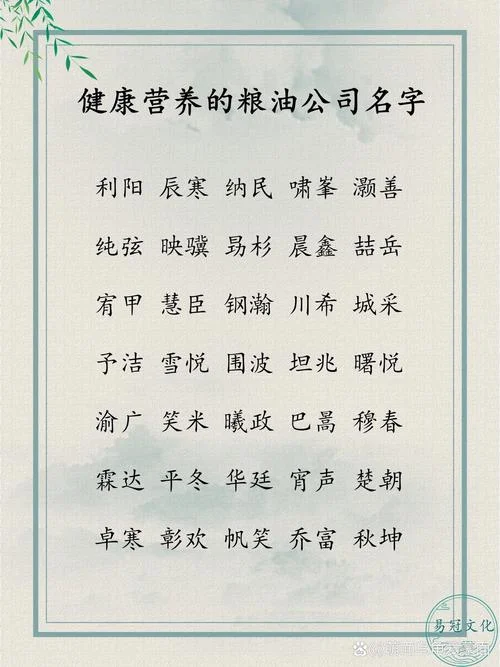 健康营养的粮油公司名字
利阳 辰寒 纳民 啸峯 灏善
纯弦 映骥 昮杉 晨鑫 喆岳
宥甲 慧臣 钢瀚 川希 城采
予洁 雪悦 围波 坦兆 曙悦
渝广 笑米 曦政 巴暠 穆春
霖达 平冬 华廷 宵声 楚朝
卓寒 彰欢 帆笑 乔富 秋坤
易冠文化